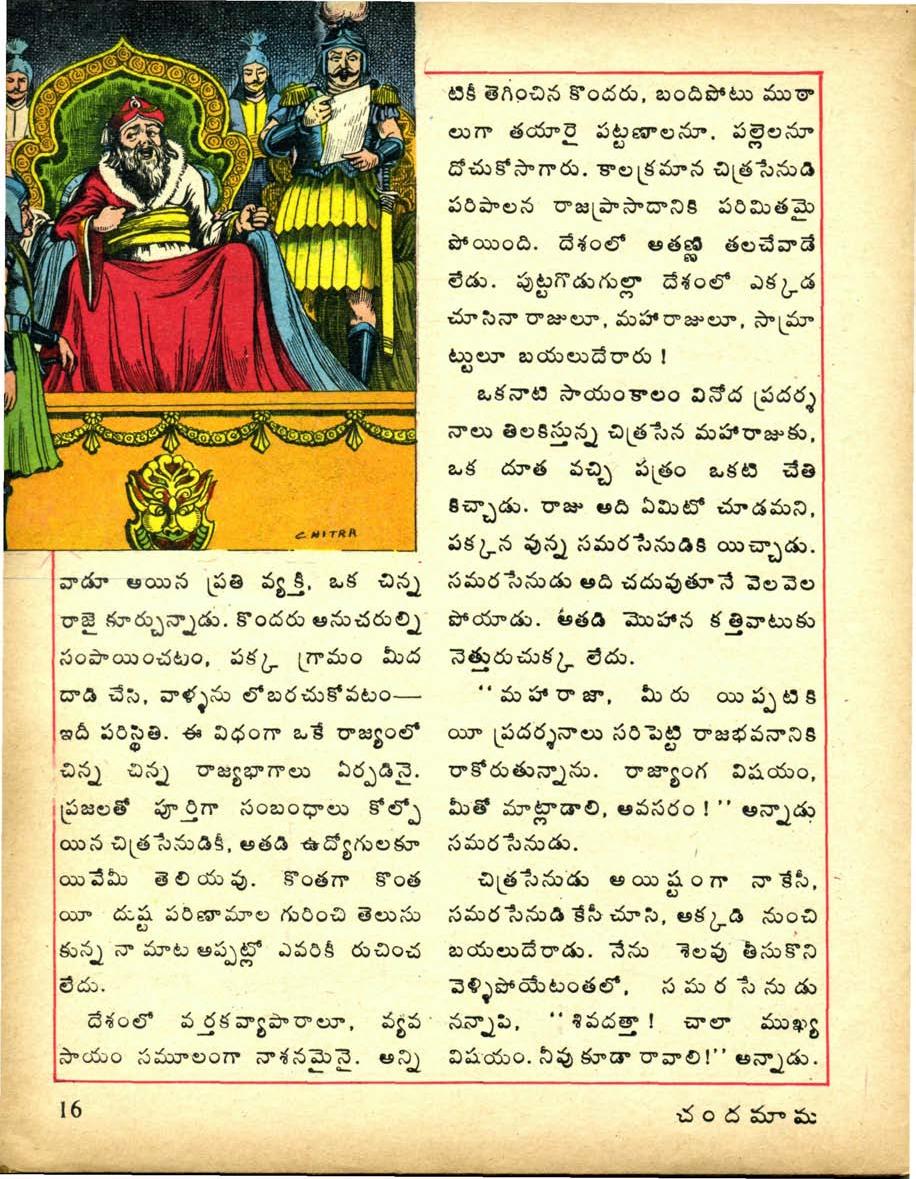 CHITRA
వాడూ అయిన ప్రతి వ్యక్తి, ఒక చిన్న
రాజై కూర్చున్నాడు. కొందరు అనుచరుల్ని
సంపాయించటం, పక్క గ్రామం మీద
దాడి చేసి, వాళ్ళను లోబరచుకోవటం—
ఇదీ పరిస్థితి. ఈ విధంగా ఒకే రాజ్యంలో
చిన్న చిన్న రాజ్యభాగాలు ఏర్పడినై.
ప్రజలతో పూర్తిగా సంబంధాలు కోల్పో
యిన చిత్రసేనుడికీ, అతడి ఉద్యోగులకూ
యివేమీ తెలియవు. కొంతగా కొంత
యీ దుష్ట పరిణామాల గురించి తెలుసు
కున్న నా మాట అప్పట్లో ఎవరికీ రుచించ
లేదు.
దేశంలో వర్తకవ్యాపారాలూ, వ్యవ
సాయం సమూలంగా నాశనమైనై. అన్ని
టికీ తెగించిన కొందరు, బందిపోటు ముఠా
లుగా తయారై పట్టణాలనూ. పల్లెలనూ
దోచుకోసాగారు. కాలక్రమాన చిత్రసేనుడి
పరిపాలన రాజప్రాసాదానికి పరిమితమై
పోయింది. దేశంలో అతణ్ణి తలచేవాడే
లేడు. పుట్టగొడుగుల్లా దేశంలో ఎక్కడ
చూసినా రాజులూ, మహారాజులూ, సామ్రా
ట్టులూ బయలుదేరారు !
ఒకనాటి సాయంకాలం వినోద ప్రదర్శ
నాలు తిలకిస్తున్న చిత్రసేన మహారాజుకు,
ఒక దూత వచ్చి పత్రం ఒకటి చేతి
కిచ్చాడు. రాజు అది ఏమిటో చూడమని,
పక్కన వున్న సమరసేనుడికి యిచ్చాడు.
సమరసేనుడు అది చదువుతూనే వెలవెల
పోయాడు. అతడి మొహాన కత్తివాటుకు
నెత్తురుచుక్క లేదు.
“మహారాజా, మీరు యిప్పటికి
యీ ప్రదర్శనాలు సరిపెట్టి రాజభవనానికి
రాకోరుతున్నాను. రాజ్యాంగ విషయం,
మీతో మాట్లాడాలి, అవసరం !” అన్నాడు
సమరసేనుడు.
చిత్రసేనుడు అయిష్టంగా నాకేసీ,
సమరసేనుడి కేసీ చూసి, అక్కడి నుంచి
బయలుదేరాడు. నేను శెలవు తీసుకొని
వెళ్ళిపోయేటంతలో, సమరసేనుడు
నన్నాపి, “శివదత్తా ! చాలా ముఖ్య
విషయం. నీవు కూడా రావాలి!” అన్నాడు.
16
చందమామ